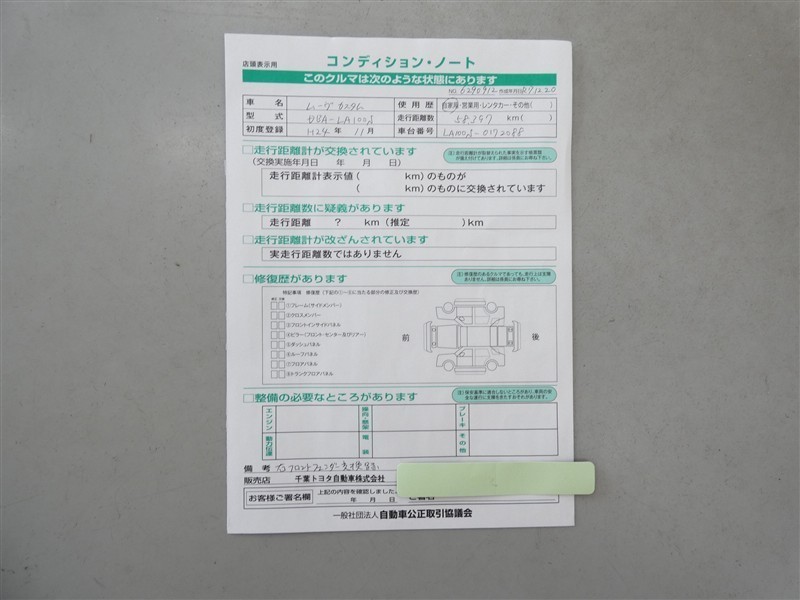 店頭表示用
コンディション・ノート
このクルマは次のような状態にあります
NO. 6290912 作成年月日 R7.12.20
車名 ムーヴ カスタム 使用歴 自家用・営業用・レンタカー・その他( )
型式 DBA-LA100S 走行距離数 58,397 km( )
初度登録 H24年 11月 車台番号 LA100S-0172088
□走行距離計が交換されています
(交換実施年月日 年 月 日)
走行距離計表示値( km)のものが
( km)のものに交換されています
□走行距離数に疑義があります
走行距離 ? km(推定 )km
□走行距離計が改ざんされています
実走行距離数ではありません
□修復歴があります
特記事項 修復歴(下記の①~⑧に当たる部分の修正及び交換歴)
①フレーム(サイドメンバー)
②クロスメンバー
③フロントインサイドパネル
④ピラー(フロント・センター及びリアー)
⑤ダッシュパネル
⑥ルーフパネル
⑦フロアパネル
⑧トランクフロアパネル
前
後
□整備の必要なところがあります
エンジン
操向・懸架
ブレーキ
動力伝達
電装
その他
備考 右フロントフェンダー交換跡
販売店 千葉トヨタ自動車株式会社
お客様ご署名欄 上記の内容を確認しました。
年 月 日 ご署名
一般社団法人 自動車公正取引協議会